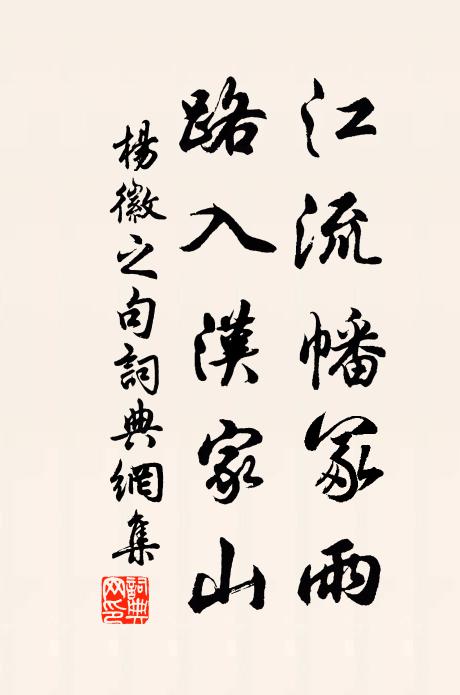 江流幡冢雨
路入漢家山
楊徽之句詞典網集
詞典网印